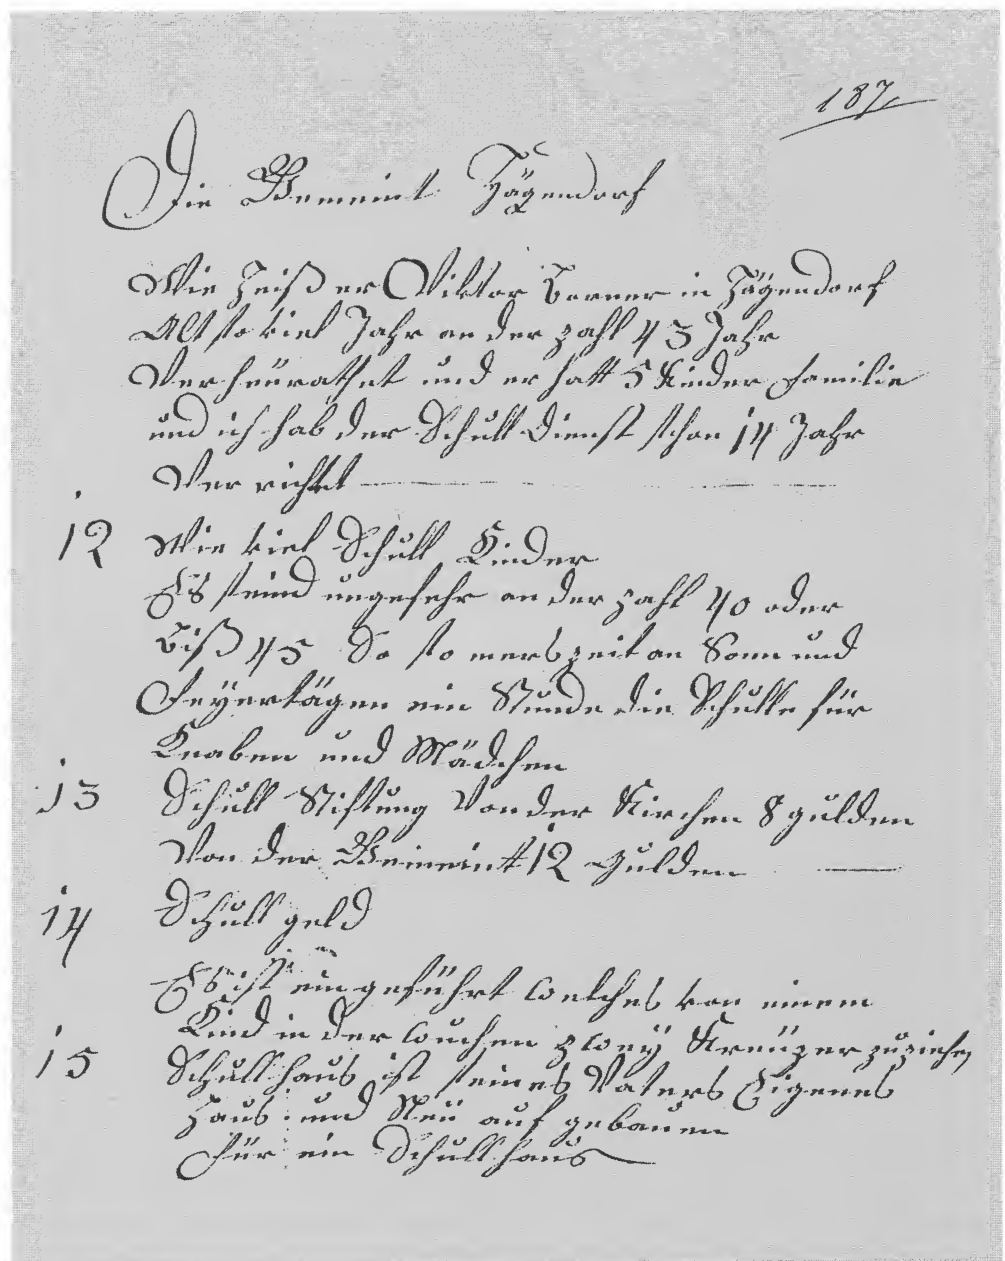 187.
Die Gemeint Hägendorf
Wie heiß er Viktor Borner in Hägendorf
Alt so viel Jahr an der zahl 43 Jahr
Verheürathet und er hatt 5 Kinder Familie
und ich hab der Schull Dienst schon 14 Jahr
Ver richtet
12 Wie viel Schull Kinder
Es seind ungefehr an der zahl 40 oder
biß 45 So so merszeit an Sonn und
Feyertägen ein Stunde die Schulle für
Knaben und Mädchen
13 Schull Stiftung Von der Kirchen 8 gulden
Von der Gemeint 12 Gulden
14 Schull geld
Es ist ein geführt welches von einem
Kind in der wuchen zwey Kreüzer zu ziehen
15 Schull haus ist seines Vaters Eigenes
Haus und Neü auf gebauen
Für ein Schull haus